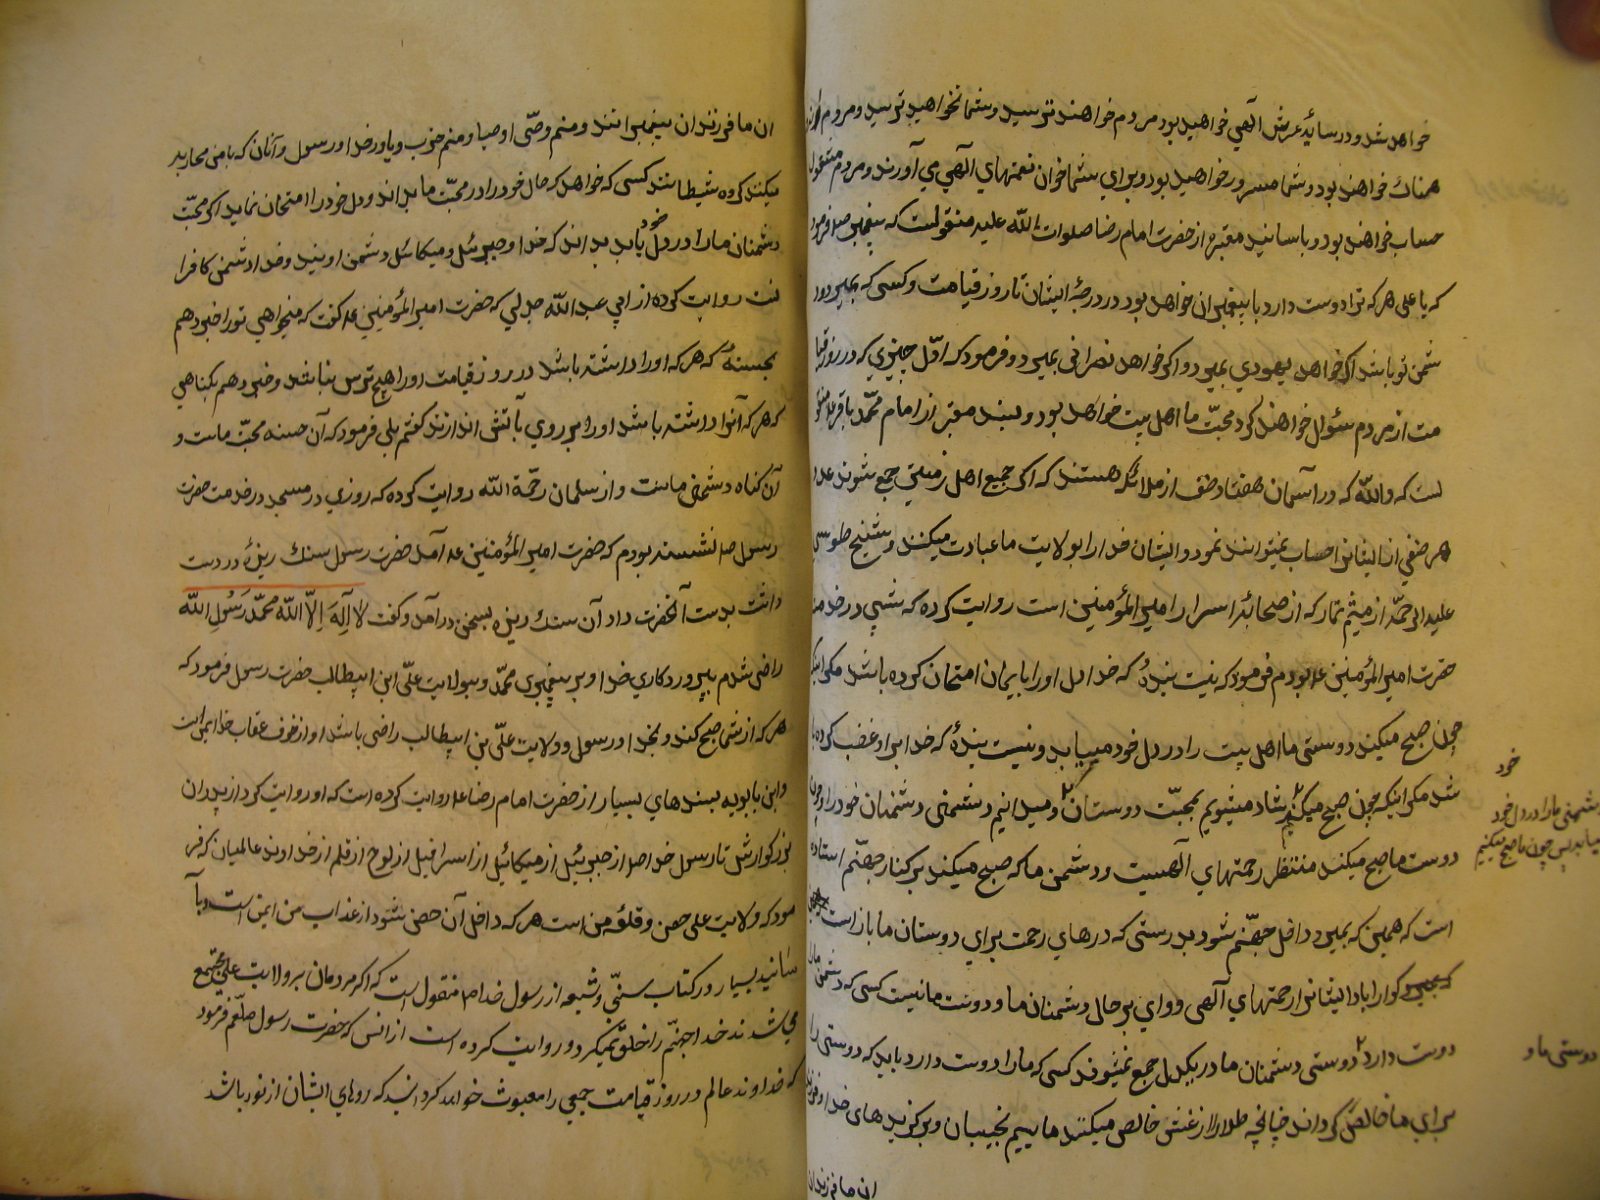 خواهد شد و در سایهٔ عرش آلهی خواهید بود مردم خواهند ترسید و شما نخواهید ترسید و مردم
غمناک خواهند بود و شما مسرور خواهید بود و برای شما خوان نعمتهای آلهی می آورند و مردم مشغول
حساب خواهند بود و باسانید معتبره از حضرت امام رضا صلوات الله علیه منقولست که پیغمبر ص فرمود
که یا علی هر که ترا دوست دارد با پیغمبران خواهد بود در درجهٔ ایشان تا روز قیامت و کسی که بمیرد و د
شمن تو باشد اکر خواهد یهودی بمیرد و اکر خواهد نصرانی بمیرد و فرمود که اوّل چیزی که در روز قیا
مت از مردم سئوال خواهند کرد محبّت ما اهل بیت خواهد بود و بسند معتبر از امام محمّد باقر ع منقو
لست که والله که در آسمان هفتاد صنف از ملائکه هستند که اکر جمیع اهل زمین جمع شوند عدد
هر صنفی از ایشانرا حساب نمیتوانند نمود و ایشان خدا را بولایت ما عبادت میکنند و شیخ طوسی
علیه الرحمّه از میثم تمار که از صحابهٔ اسرار امیر المؤمنین است روایت کرده که شبی در خدمت
حضرت امیر المؤمنین ع بودم فرمود که نیست بندهٔ که خدا دل او را بایمان امتحان کرده باشد مکر اینکه
چون صبح میکند دوستی ما اهل بیت را در دل خود مییابد و نیست بندهٔ که خدا بر او غضب کرده با
شد مکر اینکه چون صبح میکنیم شاد میشویم بمحبّت دوستان و میدانیم دشمنی دشمنان خود را و چون
خود
دشمنی ما را در دل خود
مییابد پس چون ما صبح میکنیم
دوست ما صبح میکند منتظر رحمتهای آلهیست و دشمن ما که صبح میکند بر کنار جهنّم استاده
است که همین که بمیرد داخل جهنّم شود بدرستی که درهای رحمت برای دوستان ما باز است
کوارا باد ایشانرا رحمتهای آلهی و وای بر حال دشمنان ما و دوست ما نیست کسی که دشمن ما را
دوست دارد دوستی دشمنان ما در یکدل جمع نمیشوند کسی که ما را دوست دارد باید که دوستی را
دوستی ما و
برای ما خالص کرداند چنانچه طلا را از غش خالص میکنند ماییم نجیبان و برکزیدهای خدا و فرزند
ان ما فرزندان
ان ما فرزندان پیغمبرانند و منم وصّی اوصیا و منم حزب و یاور خدا و رسول و آنان که با من محاربه
میکنند کروه شیطانند کسی که خواهد که حال خود را در محبّت ما بداند و دل خود را امتحان نماید اکر محبّت
دشمنان ما را در دل خود یابد بداند که خدا و جبرئیل و میکائیل دشمن اویند و خدا دشمن کافرا
نست روایت کرده از ابی عبد الله جدلی که حضرت امیر المؤمنین ع کفت که میخواهی تو را خبر دهم
بحسنهٔ که هر که او را داشته باشد در روز قیامت او را هیچ ترس نباشد و خبر دهم بکناهی
که هر که آنرا داشته باشد او را بر روی بآتش اندازند کفتم بلی فرمود که آن حسنه محبّت ماست و
آن کناه دشمنی ماست و از سلمان رحمّة الله روایت کرده که روزی در مسجد در خدمت حضرت
رسول ص نشسته بودم که حضرت امیر المؤمنین ع آمد حضرت رسول سنک ریزهٔ در دست
داشت بدست آنحضرت داد آن سنک ریزه بسخن در آمد و کفت لا اِلهَ اِلّا الله محمّد رَسُولُ الله
راضی شدم بپروردکاری خدا و بر پیغمبری محمّد و بولایت علّی ابن ابیطالب حضرت رسول فرمود که
هر که از شما صبح کند و بخدا و رسول و ولایت علّی بن ابیطالب راضی باشد او از خوف عقاب خدا ایمن است
و ابن بابویه بسندهای بسیار از حضرت امام رضا ع روایت کرده است که او روایت کرد از پدران
بزرکوارش تا رسول خدا ص از جبرئیل از میکائیل از اسرافیل از لوح از قلم از خداوند عالمیان که فر
مود که ولایت علی حصن و قلعهٔ من است هر که داخل آن حصن شود از عذاب من ایمن است و با
سانید بسیار در کتاب سنّی و شیعه از رسول خدا ص منقول است که اکر مردمان بر ولایت علی مجتمع
می شدند خدا جهنّم را خلق نمیکرد و روایت کرده است از انس که حضرت رسول صلّعم فرمود
که خداوند عالم در روز قیامت جمعی را مبعوث خواهد کردانید که روهای ایشان از نور باشد